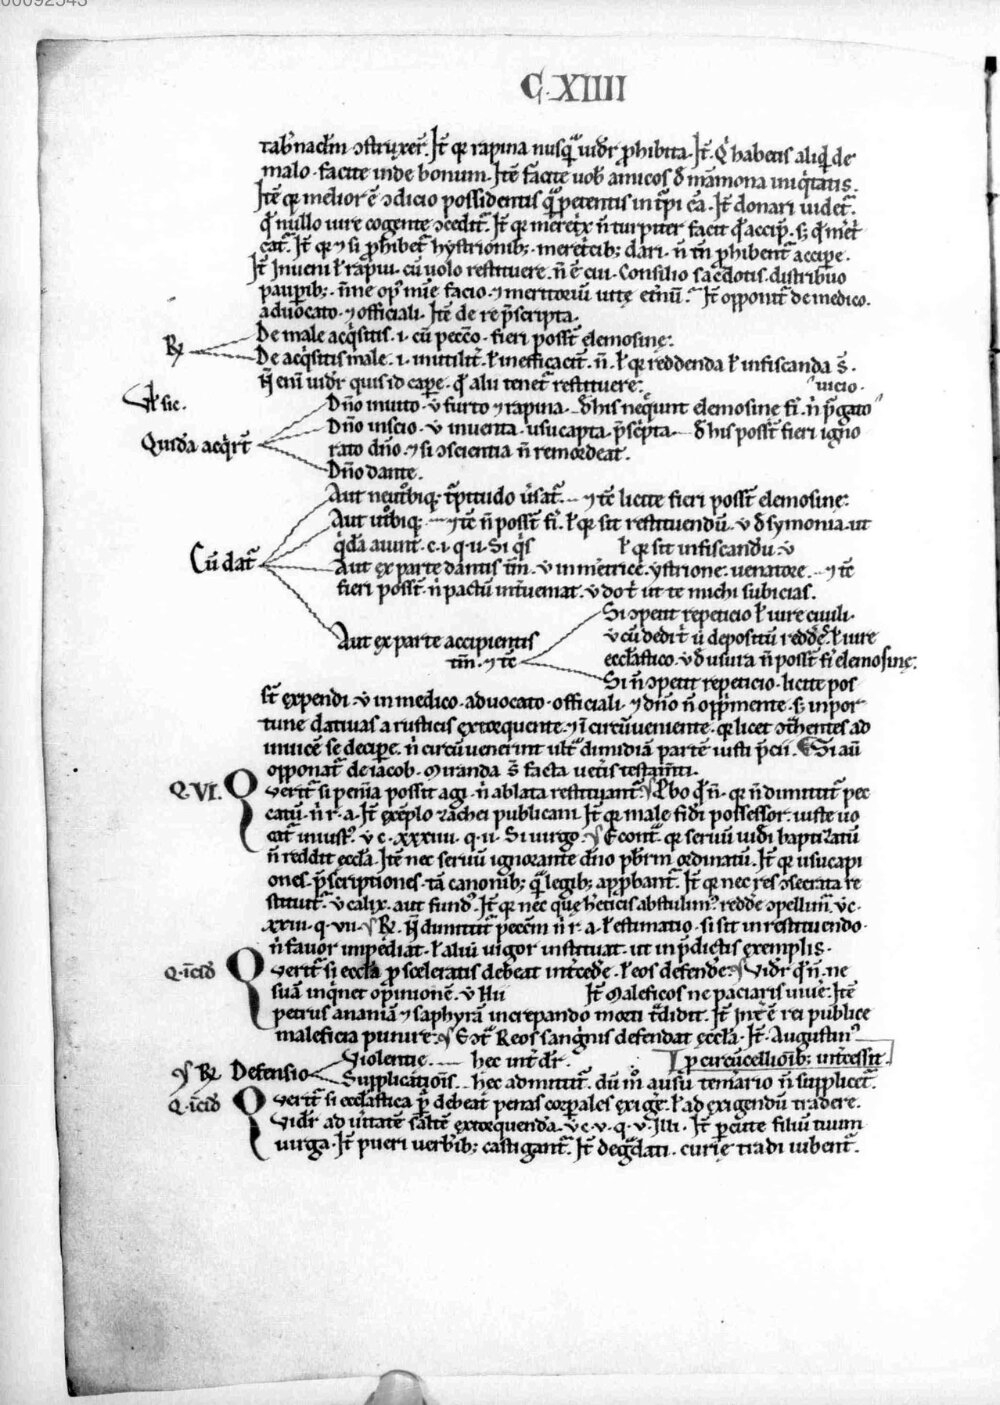 00092545
C. XIIII
tab'nac̄lm ɔstrųxer̄. It̄ qr rapina nusq̄ uidr̄ ꝓhibita. It̄. Q̇ habetis aliq̇d de
malo. facite inde bonum. Itē facite uob' amicos d̄ māmona iniq̇tatis.
Itē qr melior ē ɔdicio possidentis q̄ petentis in t̄pi cā. It̄ donari uidet̄.
q̄ nullo iure cogente ɔcedit̄. It̄ qr meret̄x n̄ turpiter facit q̄ accip̄. s; q̄ m̄et̄
cat̄. It̄ qr ⁊ si ꝓhibet̄ hystrionib; meretcib; dari. n̄ tn̄ ꝓhibent̄ accipe.
It̄ Inueni ł rapui. cū uolo restituere. n̄ ē cui. Consilio sac̄dotis. distribuo
paupib;. n̄ne op̄ mīe facio. ⁊ meritoriū uitę et̄nū. It̄ opponit̄ de medico.
aduocato. ⁊ officiali. Itē de re p̄scripta.
R̷ De male acq̇sitis. i. cū pecc̄o. fieri poss̄t elemosinę.
De acq̇sitis male. i. inutilit̄. ł inefficacit̄. n̄. ł qr reddenda ł infiscanda s̄.
N̄ enī uidr̄ quis id cape. q̄ alii tenet̄ restituere.
uicio.
Vł sic.
Dn̄o inuito. v̇ furto ⁊ rapina. d̄ his neq̇unt elemosine fi. n̄ p̄gato
Quidā acq̇rt̄ Dn̄o inscio. v̇ inuenta. usucapta. p̄sc̄pta. d̄ his poss̄t fieri igno
rato dn̄o. ⁊ si ɔscientia n̄ remordeat.
Dn̄o dante.
Aut neut̄biq; t̄pitudo u̇sat̄. ⁊ tē licite fieri poss̄t elemosinę.
Aut ut̄biq;. ⁊ tē n̄ poss̄t fi. ł qr sit restituendū. v̇ d̄ symonia. ut
q̇dā aiunt. c. i. q. ii. Si q̇s ł qr sit infiscandū. v̇
Cū dat̄ Aut ex parte dantis tm̄. v̇ in m̄etrice. ystrione. uenatore. ⁊ tē
fieri poss̄t. n̄ pactū int̄ueniat. v̇ do t̄ ut te michi subicias.
Si ɔpetit repeticio ł iure ciuili.
v̇ cū dedit̄ ū depositū redde. ł iure
Aut ex parte accipientis
tm̄. ⁊ tē eccłastico. v̇ d̄ usura n̄ poss̄t fi elemosinę.
Si n̄ ɔpetit repeticio. licite pos
s̄t expendi. v̇ in medico. aduocato. officiali. ⁊ dn̄o n̄ opp̄mente. s; inpor
tune datiuas a rusticis extorquente. ⁊ ī circūueniente. qr licet ɔt̄hentes ad
inuicē se decipe. n̄ circūuenerint ult̄ dimidiā partē iusti p̄cii. Si aū
opponat̄ de iacob. miranda s̄ facta uet̄is testam̄ti.
Q. VI. Q verit̄ si penīa possit agi. n̄ ablata restituant̄. Ꝓbo q̄ n̄. qr n̄ dimittit̄ pec
catū. n̄ r. a. It̄ exēplo zachei publicani. It̄ qr male fidi possessor. iuste uo
cat̄ iniust'. v̇ c. xxxiiii. q. ii. Si uirgo. Econt̄. qr seruū iudi baptizatū
n̄ reddit ecclā. Itē nec seruū ignorante dn̄o pb̄rm ordinatū. It̄ qr usucapi
ones. p̄scriptiones. tā canonib; q̄ legib; app̄bant̄. It̄ qr nec res ɔsecrata re
stituit̄. v̇ calix. aut fund'. It̄ qr nec quę heticis abstulim'. redde ɔpellim̄. v̇ c.
xxiii. q. vii. R̷. N̄ dimittit̄ peccm̄ n̄ r. a. ł estimatio. si sit in restituendo.
n̄ fauor impediat. ł alui uigor instituat. ut in p̄dictis exemplis.
Q. īcid' Q verit̄ si ecclā ꝓ sceleratis debeat int̄cede. ł eos defende. Vidr̄ q̄ n̄. ne
suā inq̇net opinionē. v̇ It̄ Maleficos ne paciaris uiue. Itē
petrus ananiā ⁊ saphyrā increpando morti t̄didit. It̄ Int̄ ē rei publice
maleficia punire. Ɛɔt̄ Reos sang̣nis defendat ęcclā. It̄ Augustin'
Violentie. hec int̄dr̄. ꝓ circūcellioīb; int̄cessit.
R̷ Defensio Supplicationis. hec admittit̄. dū m̊ ausū temario n̄ supplicet̄.
Q. īcid' Q verit̄ si eccłastica p̄ debeat penas corpales exige. ł ad exigendū tradere.
Vidr̄ ad ūitatē saltē extorquenda. v̇ c. v. q. v. Illi. It̄ pcute filiū tuum
uirga. It̄ pueri uerb'ib; castigant̄. It̄ deg̣dati. curię tradi iubent̄.